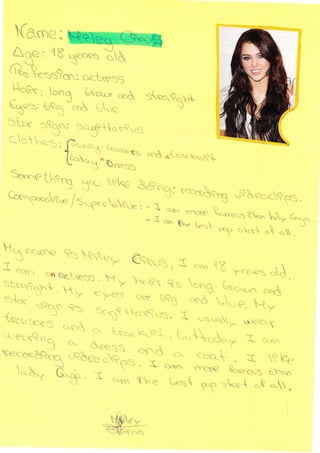 Name: Miley Cirus
Age: 18 years old
Profession: actress
Hair: long brown and straight
Eyes: big and blue
Star sign: sagittarius
clothes: usually trousers and a trackuit
today dress
Something you like doing: recording videoclips.
Comparative/Superlative: - I am more famous than lady Gaga.
- I am the best pop start of all.
My name is Miley Cirus, I am 18 years old.
I am an actress. My hair is long brown and
straight. My eyes are big and blue. My
star sign is sagittarius. I usually wear
trousers and a trackuit, but today I am
wearing a dress and a coat. I like
recording videoclips. I am more famous than
lady Gaga. I am the best pop start of all.
Miley
Cirus